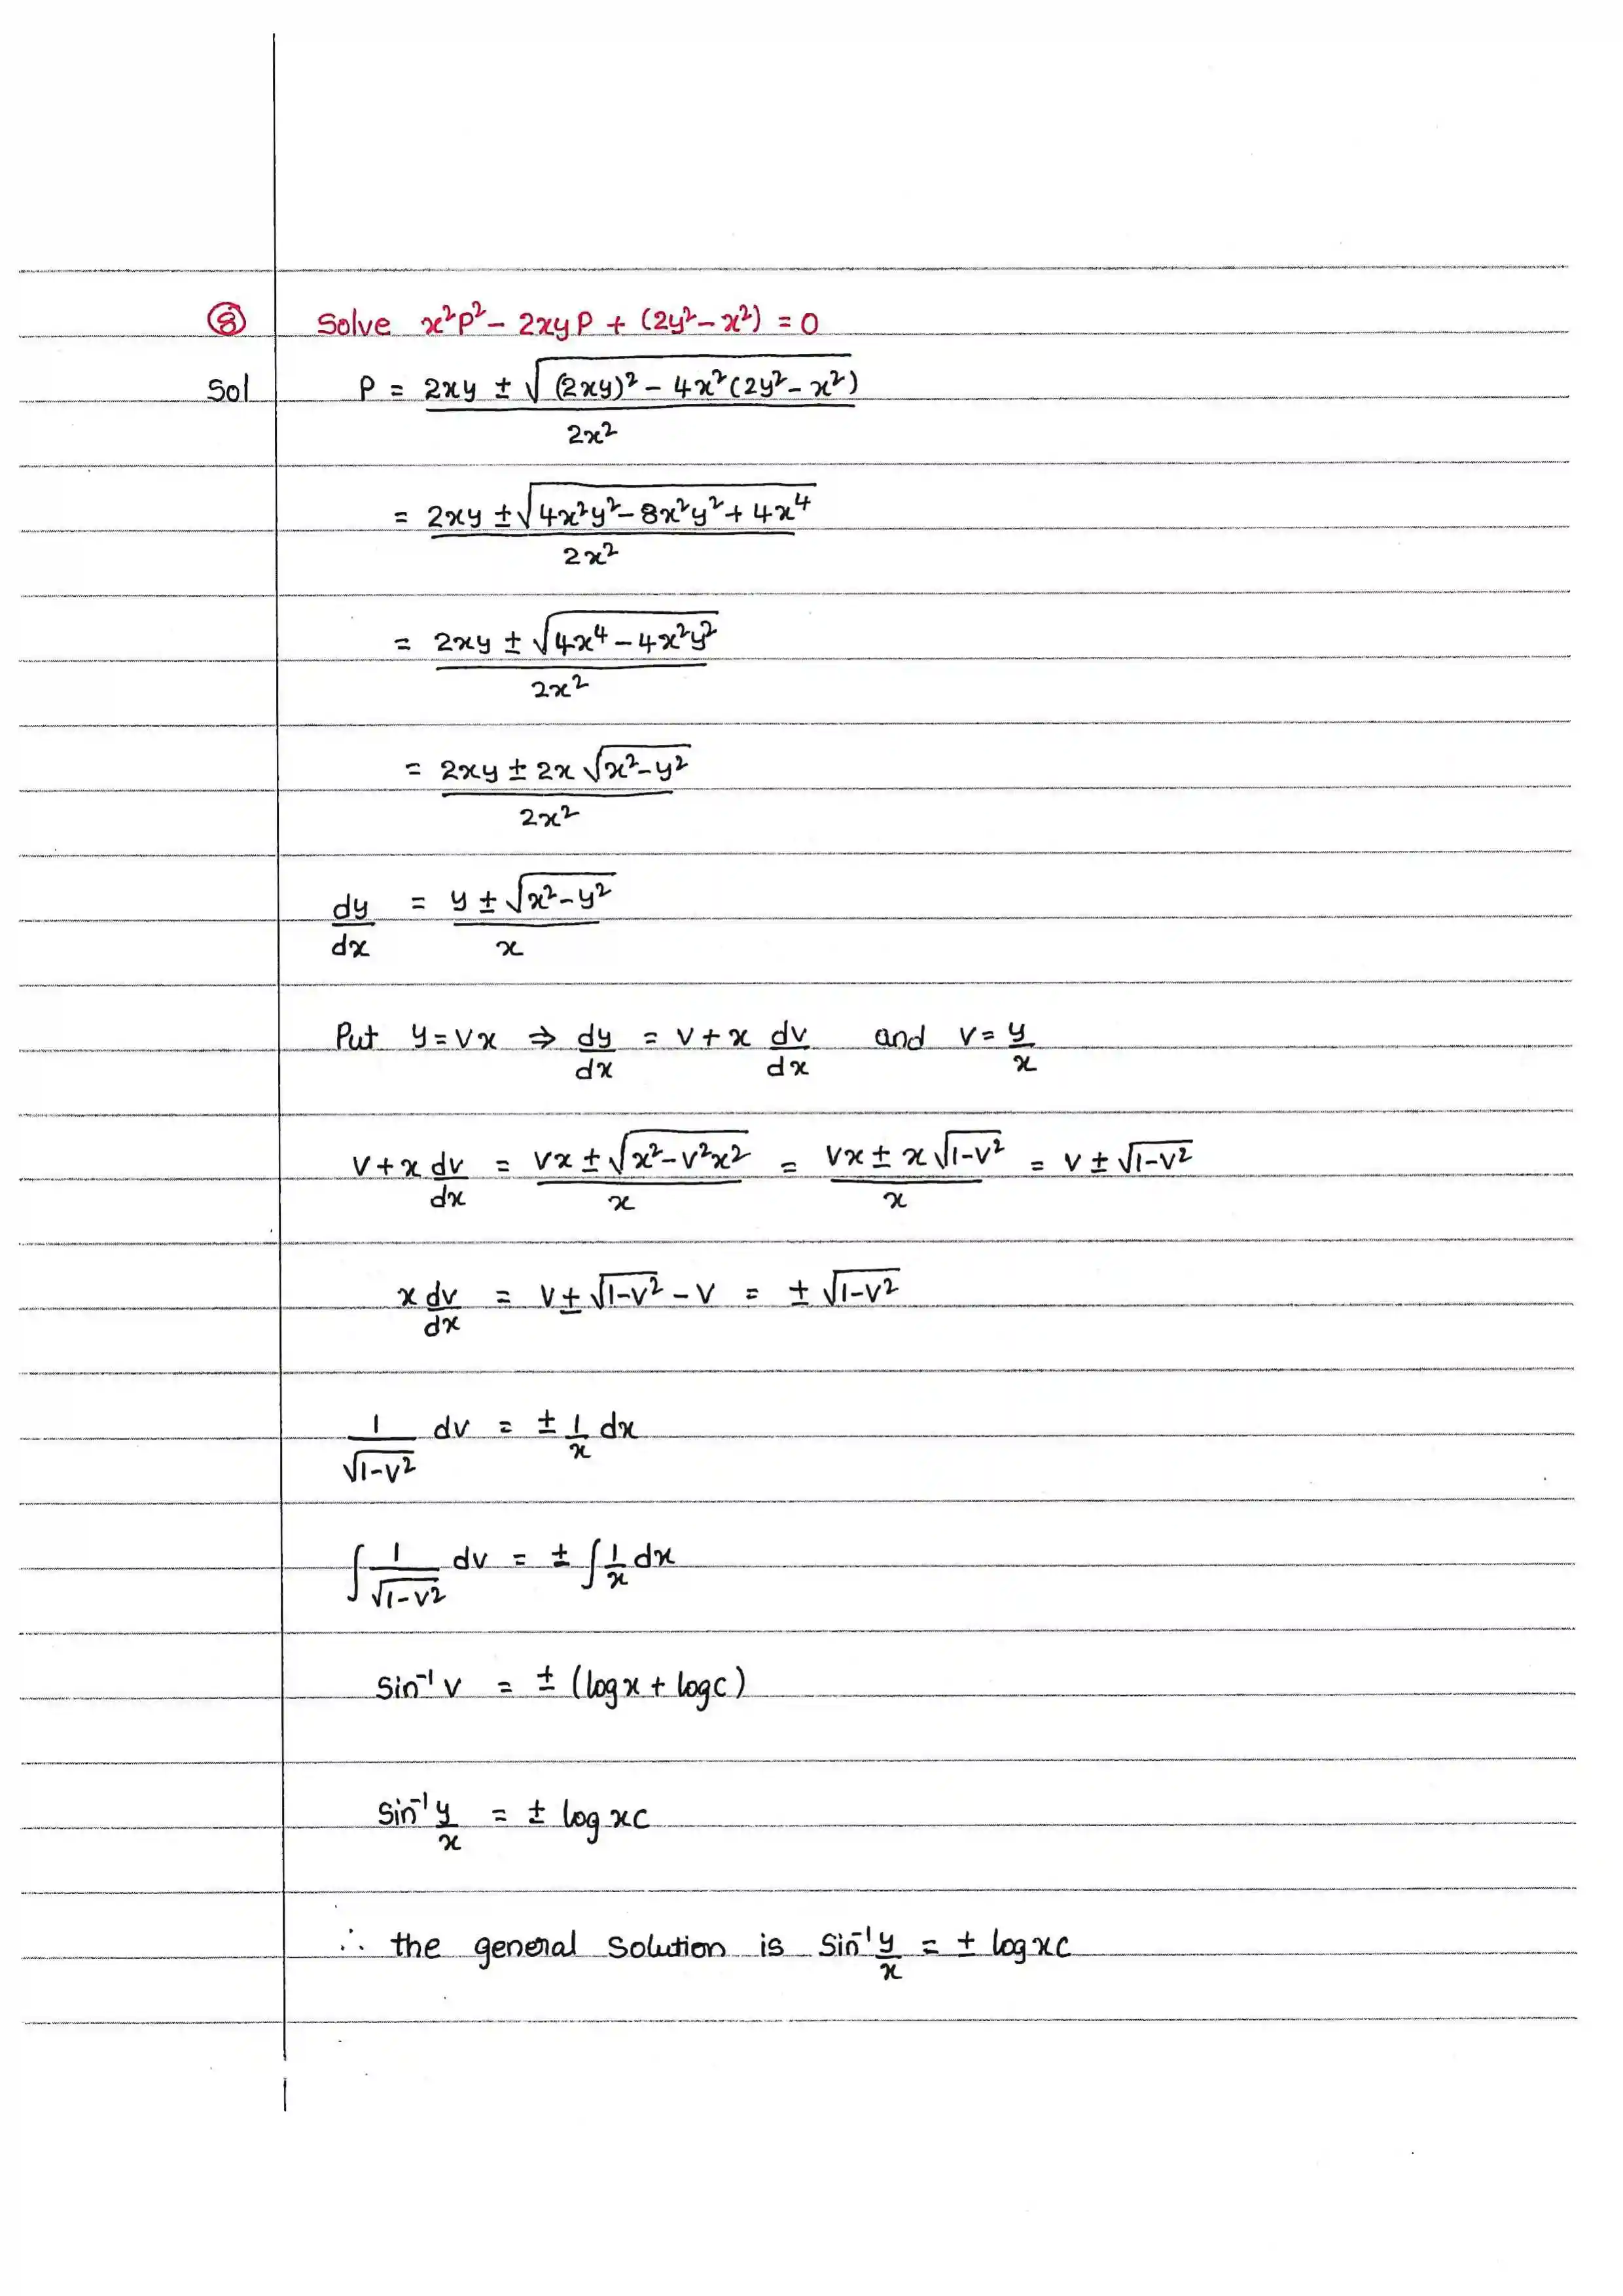 ⑧ Solve x²p² - 2xyp + (2y² - x²) = 0
Sol P = 2xy ± √((2xy)² - 4x²(2y² - x²)) / 2x²
= 2xy ± √(4x²y² - 8x²y² + 4x⁴) / 2x²
= 2xy ± √(4x⁴ - 4x²y²) / 2x²
= 2xy ± 2x √(x² - y²) / 2x²
dy/dx = y ± √(x² - y²) / x
Put y = vx ⇒ dy/dx = v + x dv/dx and v = y/x
v + x dv/dx = vx ± √(x² - v²x²) / x = vx ± x √(1-v²) / x = v ± √(1-v²)
x dv/dx = v ± √(1-v²) - v = ± √(1-v²)
1/√(1-v²) dv = ± 1/x dx
∫ 1/√(1-v²) dv = ± ∫ 1/x dx
Sin⁻¹ v = ± (log x + log c)
Sin⁻¹ y/x = ± log xc
∴ the general solution is Sin⁻¹ y/x = ± log xc